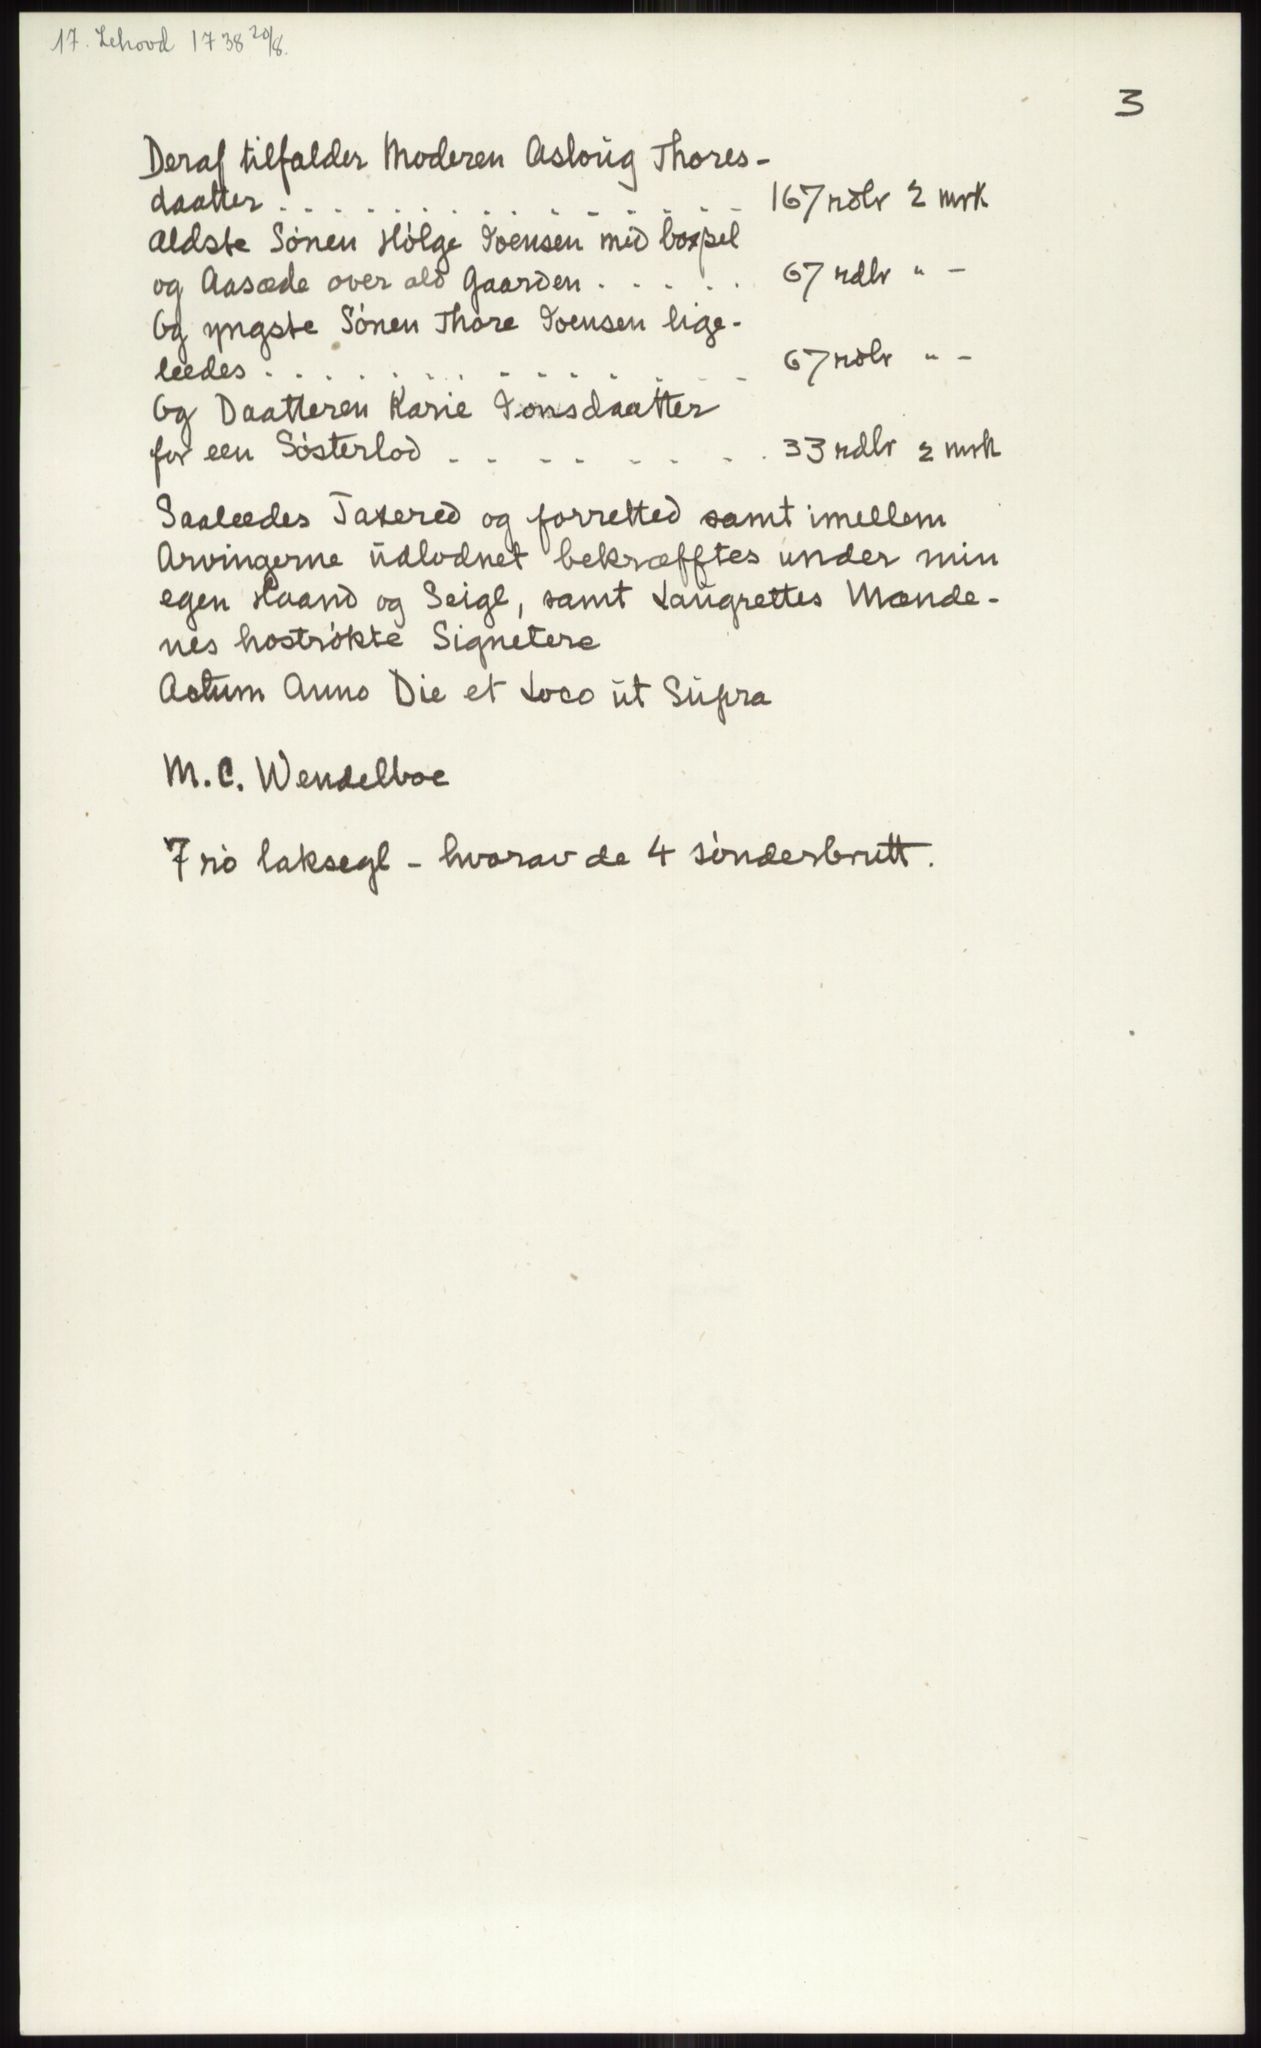 17. Lehovd 1738 20/8.
3
Deraf tilfalder Moderen Asloüg Thores-
daatter . . . . . . . . . . . . . . . . 167 rdlr 2 mrk
Aldste Sónen Hólge Joensen mid boxsel
og Aasæde over ald Gaarden . . . . . . 67 rdlr " -
Og yngste Sónen Thore Joensen lige-
leedes . . . . . . . . . . . . . . . . 67 rdlr " -
Og Daatteren Karie Jonsdaatter
for een Sósterlod . . . . . . . . . 33 rdlr 2 mrk
Saaleedes Taxered og forretted samt imellem
Arvingerne üdlodnet bekræfftes under min
egen Haand og Seigl, samt Laügrettes Mænde-
nes hostrókte Signetere
Actum Anno Die et Loco üt Süpra
M. C. Wendelboe
7 ró laksegl - hvorav de 4 sónderbrutt.